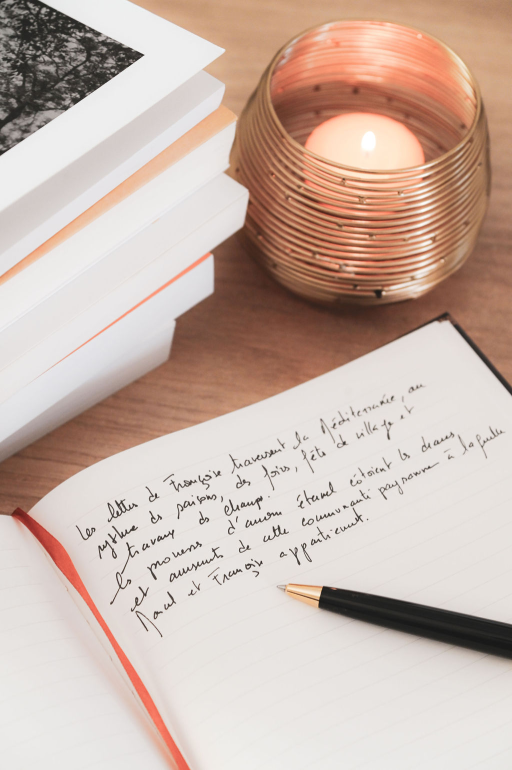 Les lettres de Françoise traversent la Méditerranée, au
rythme des saisons, des foins, fête de village et
travaux des champs.
Les promesses d'amour éternel côtoient les drames
et de cette communauté paysanne à laquelle
Marcel et Françoise appartiennent.